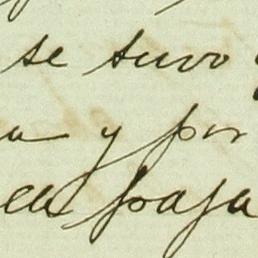 se tuvo
a y por
ea paja